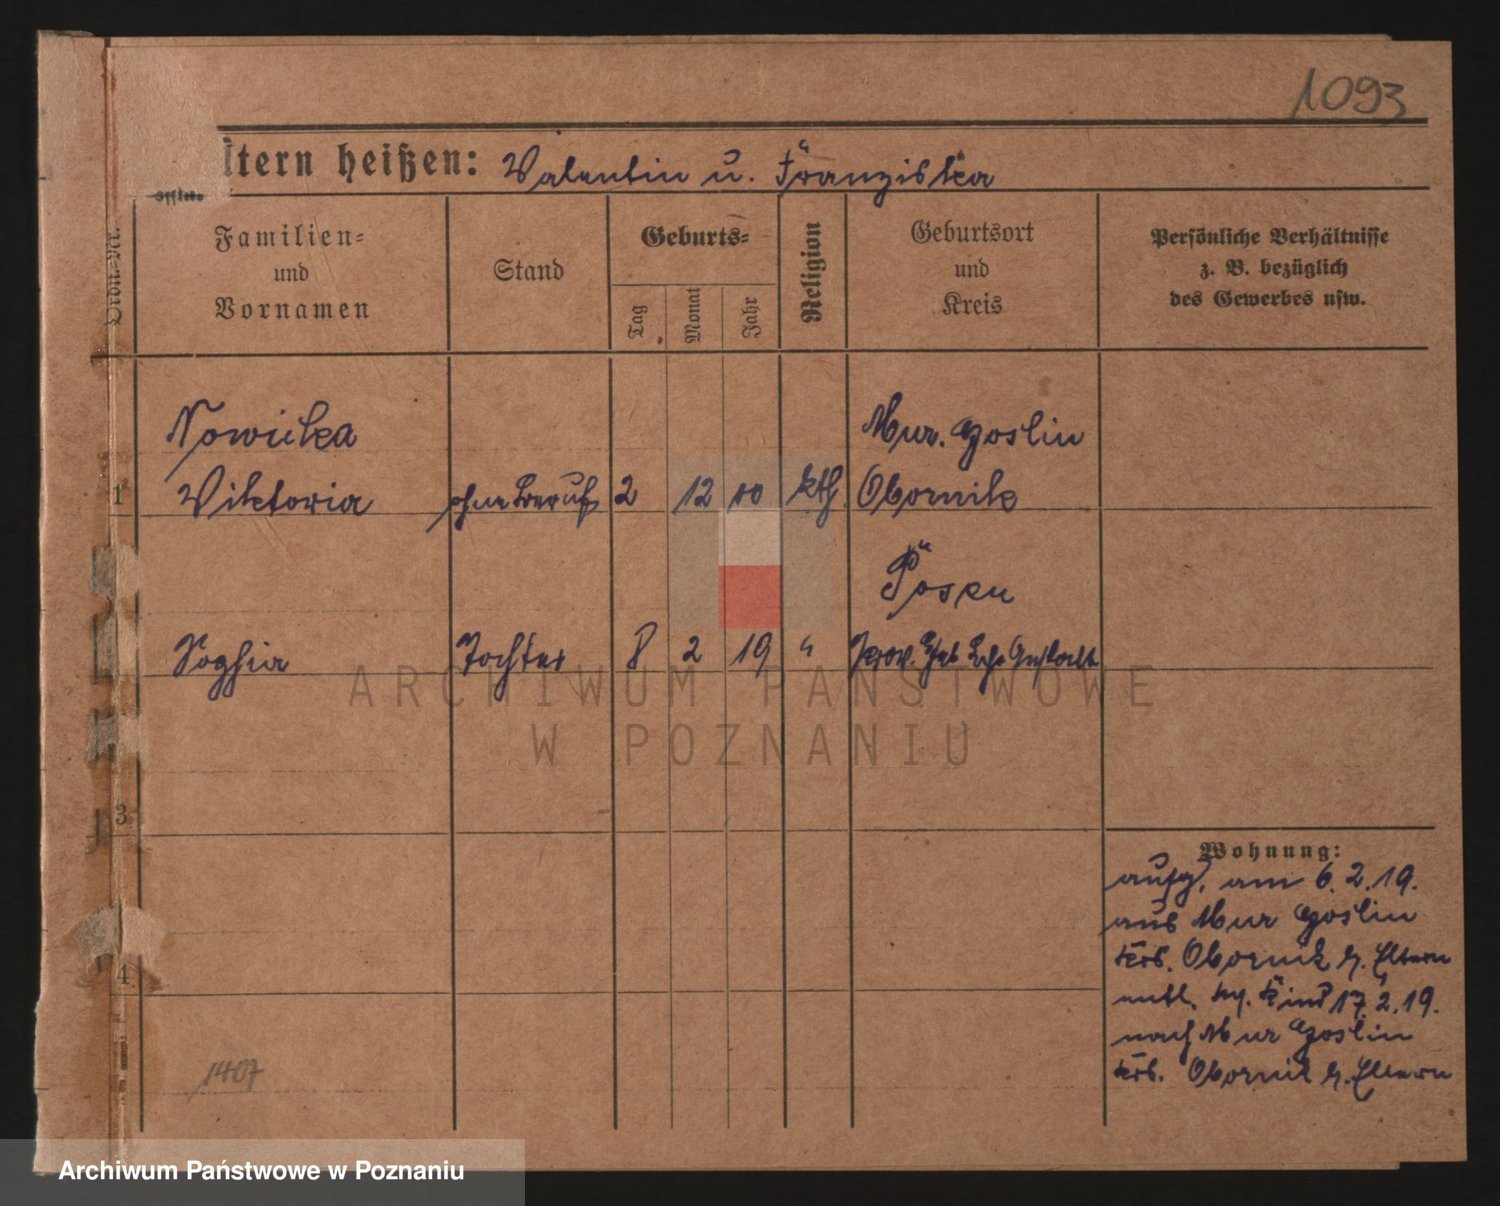 1093
ltern heißen: Valentin u. Franziska
Ordn.-Nr.
Familien-
und
Vornamen
Stand
Geburts-
Tag
Monat
Jahr
Religion
Geburtsort
und
Kreis
Persönliche Verhältnisse
z. B. bezüglich
des Gewerbes usw.
Nowicka Mur. Goslin
1 Viktoria ohne Beruf 2 12 00 kth. Obornik
Posen
Sophia Tochter 8 2 19 "
ARCHIWUM PAŃSTWOWE
W POZNANIU
3
Wohnung:
aufg. am 6.2.19.
aus Mur Goslin
Krs. Obornik z. Eltern
entl. m. Kind 17.2.19.
nach Mur Goslin
Krs. Obornik z. Eltern
4.
1407
Archiwum Państwowe w Poznaniu